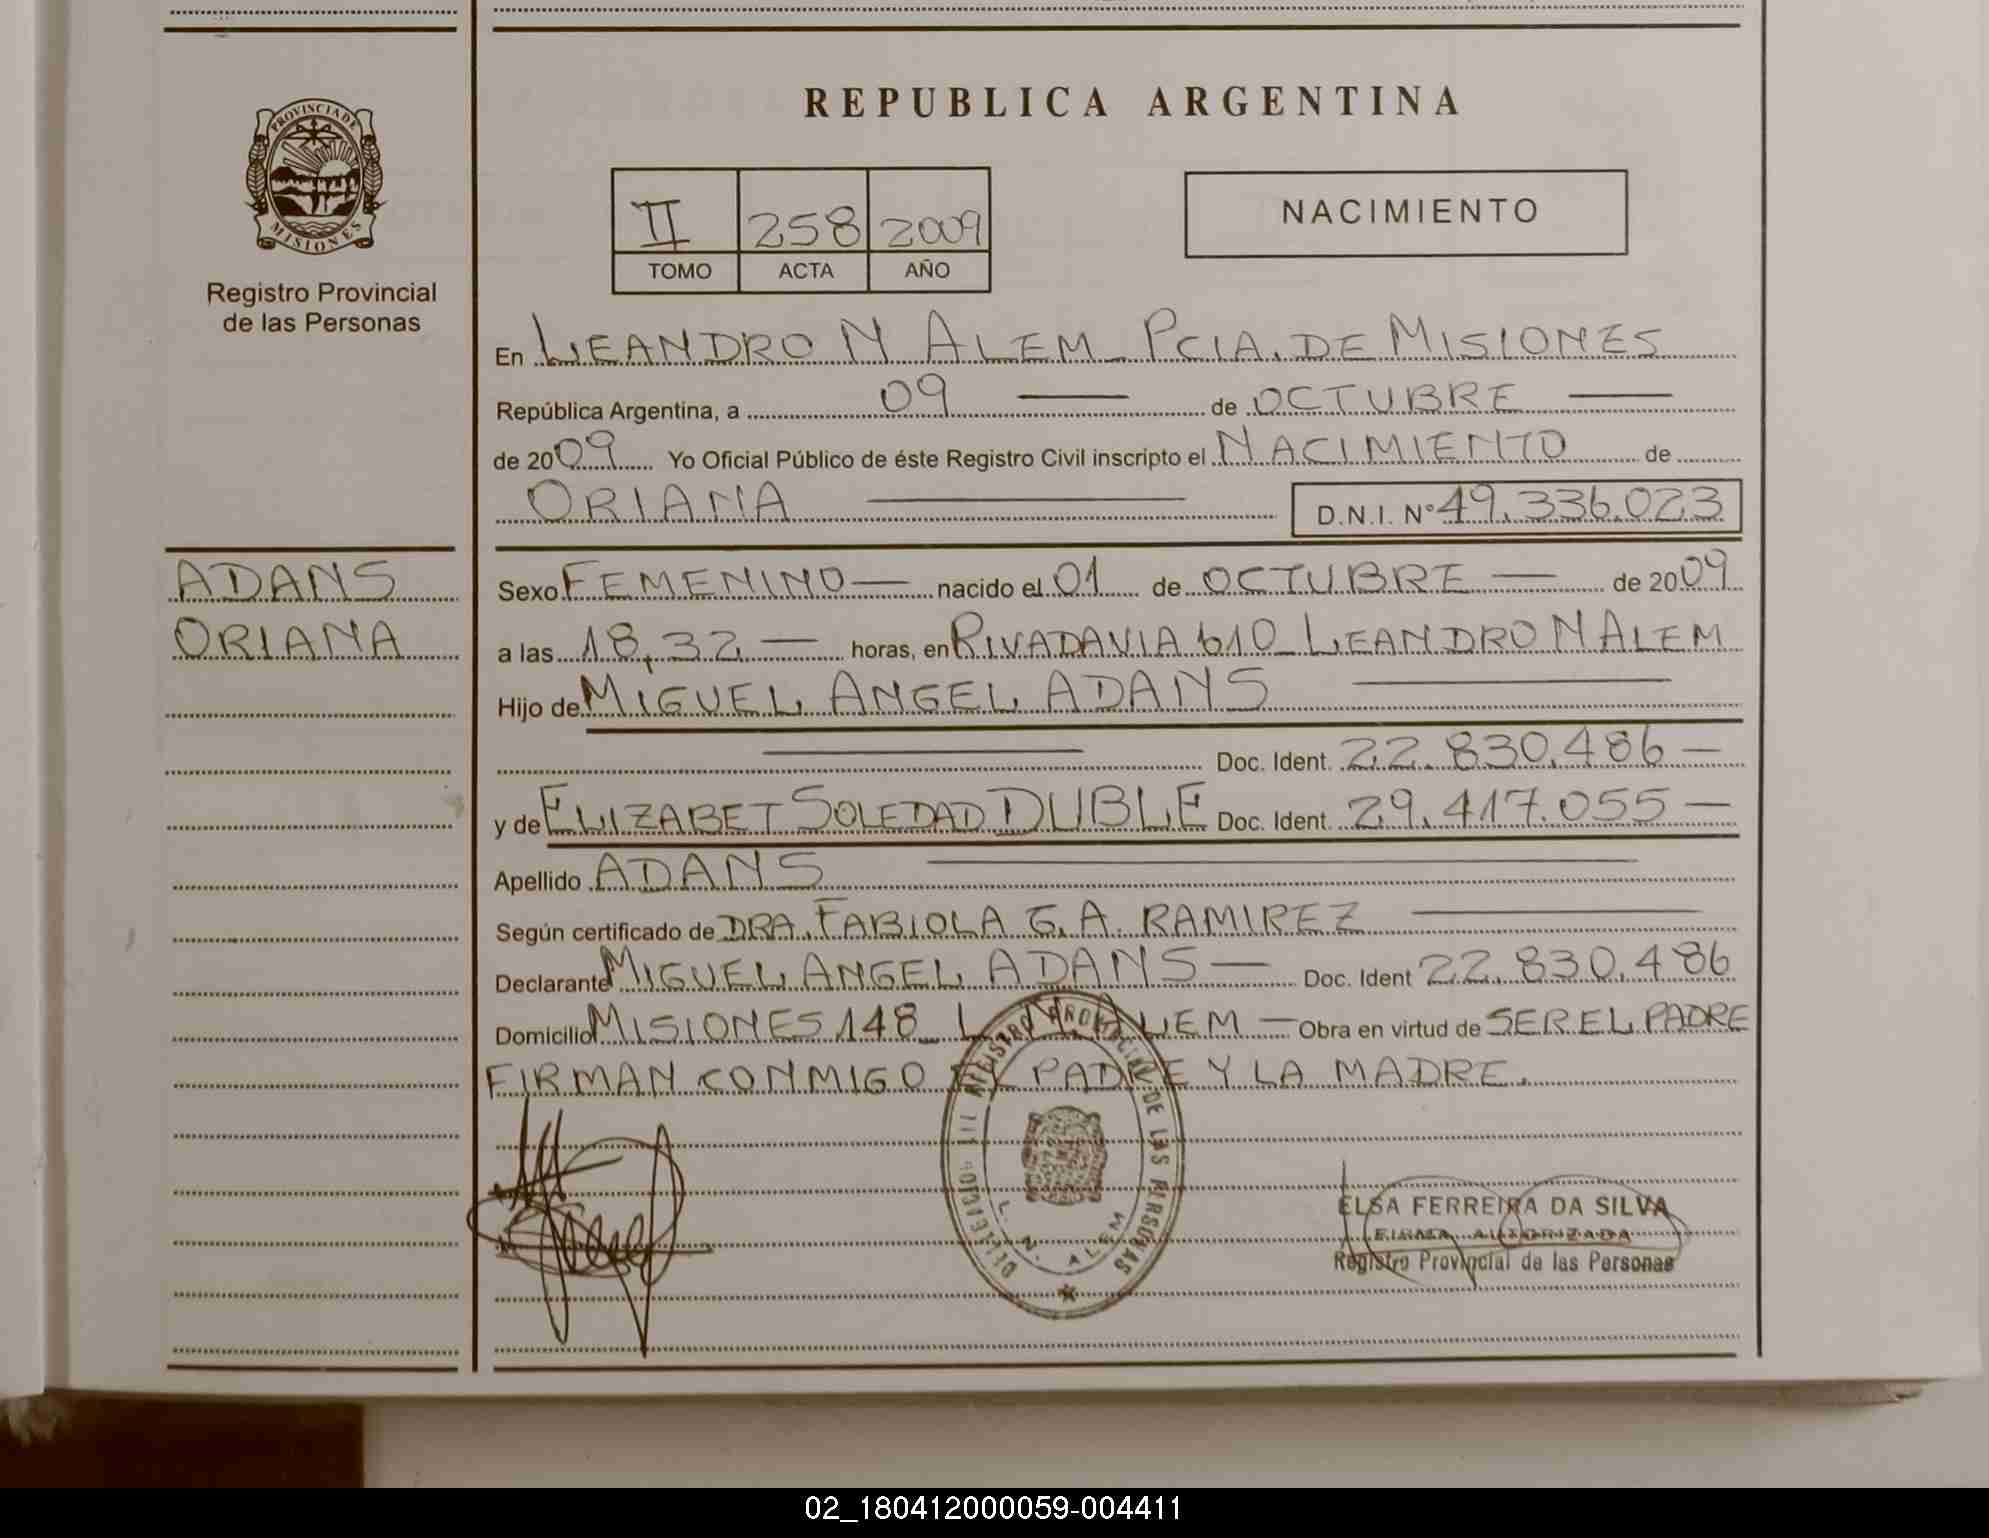 REPUBLICA ARGENTINA
PROVINCIA DE
MISIONES
Registro Provincial
de las Personas
II 258 2009
TOMO ACTA AÑO
NACIMIENTO
En LEANDRO N ALEM - PCIA. DE MISIONES
República Argentina, a 09 — de OCTUBRE —
de 2009 Yo Oficial Público de éste Registro Civil inscripto el NACIMIENTO de
ORIANA — D.N.I. N° 49.336.023
ADANS
ORIANA
Sexo FEMENINO — nacido el 01 de OCTUBRE — de 2009
a las 18,32 — horas, en RIVADAVIA 610 - LEANDRO N ALEM
Hijo de MIGUEL ANGEL ADANS —
— Doc. Ident. 22.830.486 —
y de ELIZABET SOLEDAD DUBLE Doc. Ident. 29.417.055 —
Apellido ADANS —
Según certificado de DRA. FABIOLA G. A. RAMIREZ —
Declarante MIGUEL ANGEL ADANS — Doc. Ident 22.830.486
Domicilio MISIONES 148 - L. N. ALEM — Obra en virtud de SER EL PADRE
FIRMAN CONMIGO EL PADRE Y LA MADRE.
REGISTRO PROVINCIAL DE LAS PERSONAS
L. N. ALEM
ELSA FERREIRA DA SILVA
FIRMA AUTORIZADA
Registro Provincial de las Personas
02_180412000059-004411